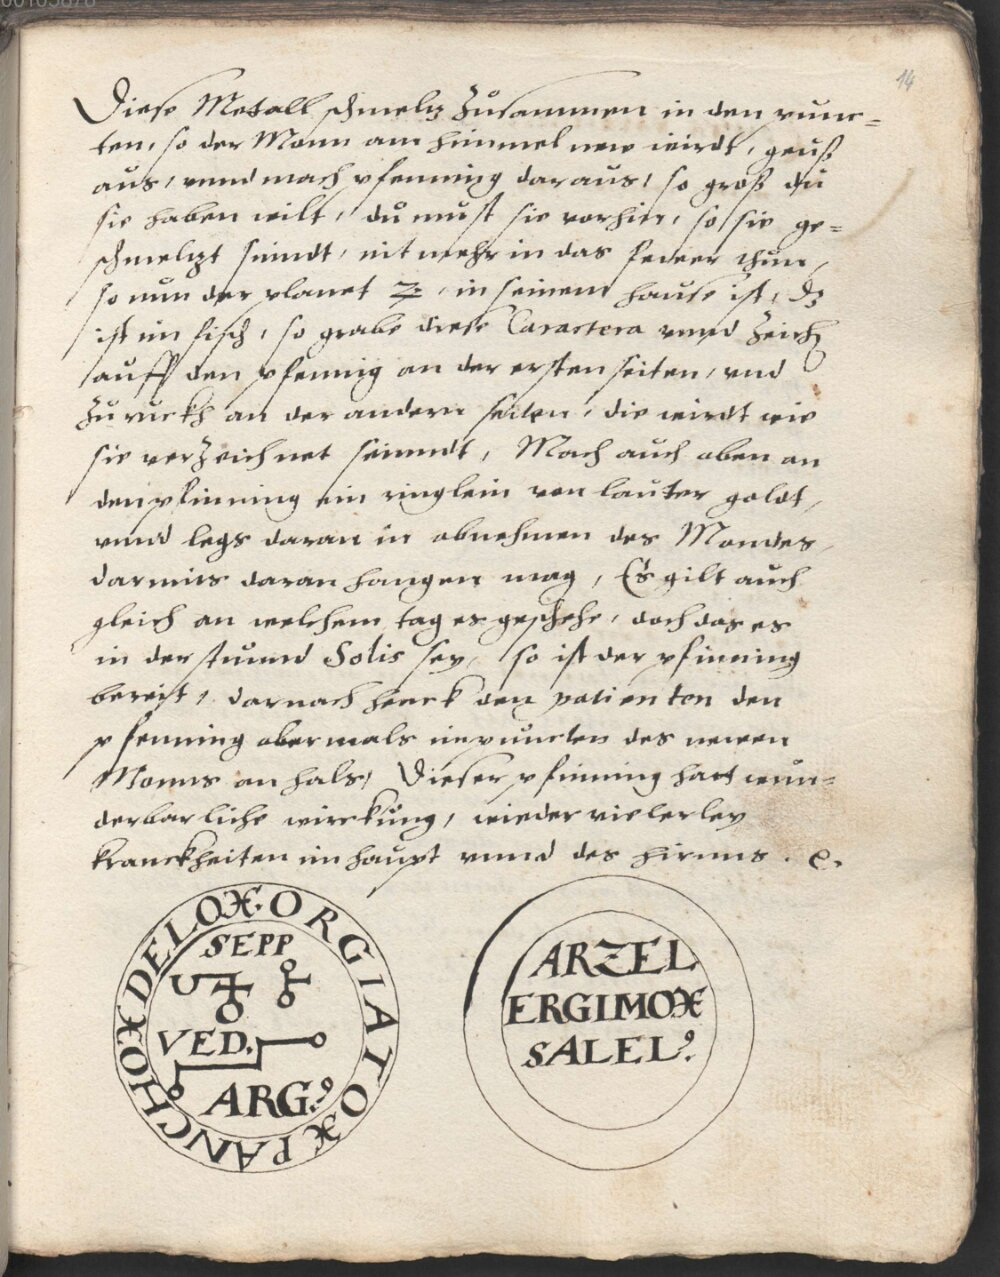 14
Diese Metall schmeltz Zusammen in den punc=
ten, so der Monn am himmel new wirdt, geuß
aus, vnnd mach pfenning daraus, so groß du
sie haben wilt, du must sie vorhin, so sie ge=
schmeltzt seindt, nit mehr in das fewer thun,
so nun der planet ♃ in seinem hause ist, dz
ist im fisch, so grabe diese Caractera vnnd Zeich
auff den pfennig an der ersten seiten, vnd
Zuruckh an der andern seiten, die wirdt wie
sie verzeichnet seinndt, Mach auch oben an
den pfinning ein ringlein von lauter goldt,
vnnd legs daran in abnehmen des Mondes,
darmits daran hangen mag, Es gilt auch
gleich an welchem tag es geschehe, doch das es
in der stunnd Solis sey, so ist der pfinning
bereit, darnach henck den patienten den
pfenning abermals im puncten des newen
Monns an hals, Dieser pfinning hatt wun=
derbarliche wirckung, wieder vielerley
kranckheiten im haupt vnnd des hirnns.
ORGIATOX PANCHOX DELOX
SEPP
VED.
ARG.
ARZEL
ERGIMOX
SALEL